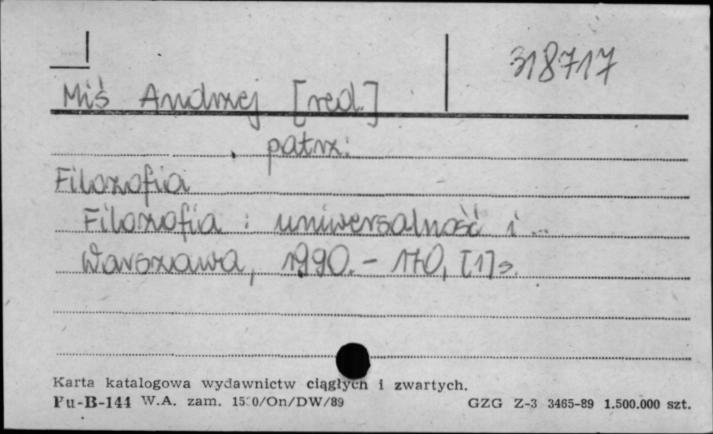 318717
Miś Andrzej [red.]
patrz:
Filozofia
Filozofia : uniwersalność i ...
Warszawa, 1990. - 170, [1] s.
Karta katalogowa wydawnictw ciągłych i zwartych.
Pu-B-144 W.A. zam. 1520/On/DW/89 GZG Z-3 3465-89 1.500.000 szt.